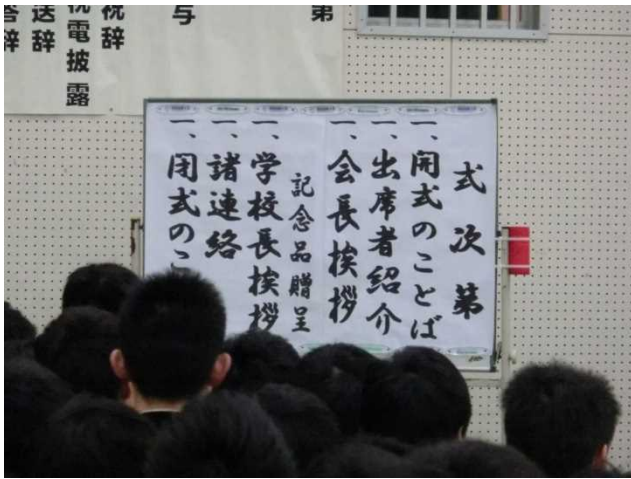 第
与
祝辞
祝電披露
送辞
答辞
式次第
一、開式のことば
一、出席者紹介
一、会長挨拶
記念品贈呈
一、学校長挨拶
一、諸連絡
一、閉式のこ